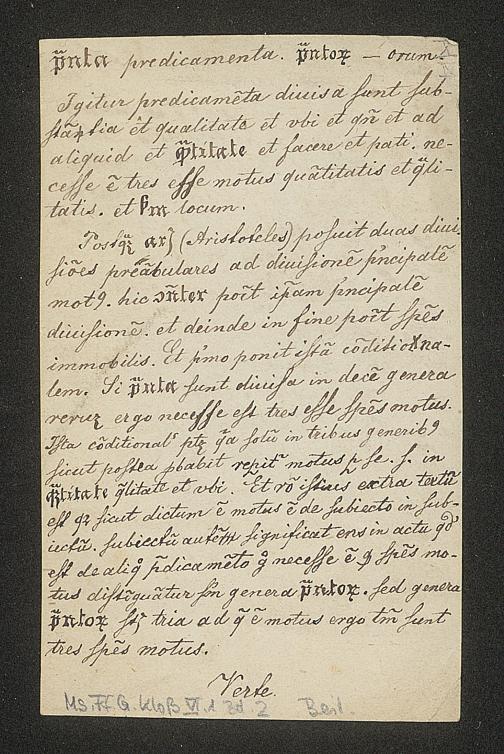 p̄nta predicamenta. p̄ntoꝝ — orum.
Igitur predicamēta diuisa sunt sub-
stātia et qualitate et vbi et qn̄ et ad
aliquid et q̄titate et facere et pati. ne-
cesse ē tres esse motus quātitatis et q̄li-
tatis. et locum.
(Aristoteles) posuit duas diui
siōes preābulares ad diuisionē pⁱncipalē
motꝰ. hic pōit ip̄am pⁱncipalē
diuisionē. et deinde in fine pōit sp̄es
immobilis. Et pⁱmo ponit istā cōditiōna-
lem. Si p̄nta sunt diuisa in decē genera
reruꝫ ergo necesse est tres esse sp̄es motus.
Ista cōditional' ptꝫ q̄a solū in tribus generibꝰ
sicut postea ꝓbabit repit' motus ꝑ se. s. in
q̄titate q̄litate et vbi. Et rō istiusˀ extra textū
est qꝫ sicut dictum ē motus ē de subiecto in sub-
iectū. subiectū autē significat ens in actu qd'
est de aliqͦ p̄dicamēto gͦ necesse ē ꝙ sp̄es mo-
tus distīguātur sm̄ genera p̄ntoꝝ. sed genera
p̄ntoꝝ st̄ tria ad q̄ ē motus ergo tm̄ sunt
tres sp̄es motus.
Verte.
Ms. Ff. G. Kloß VI. 1 Bd. 2 Beil.